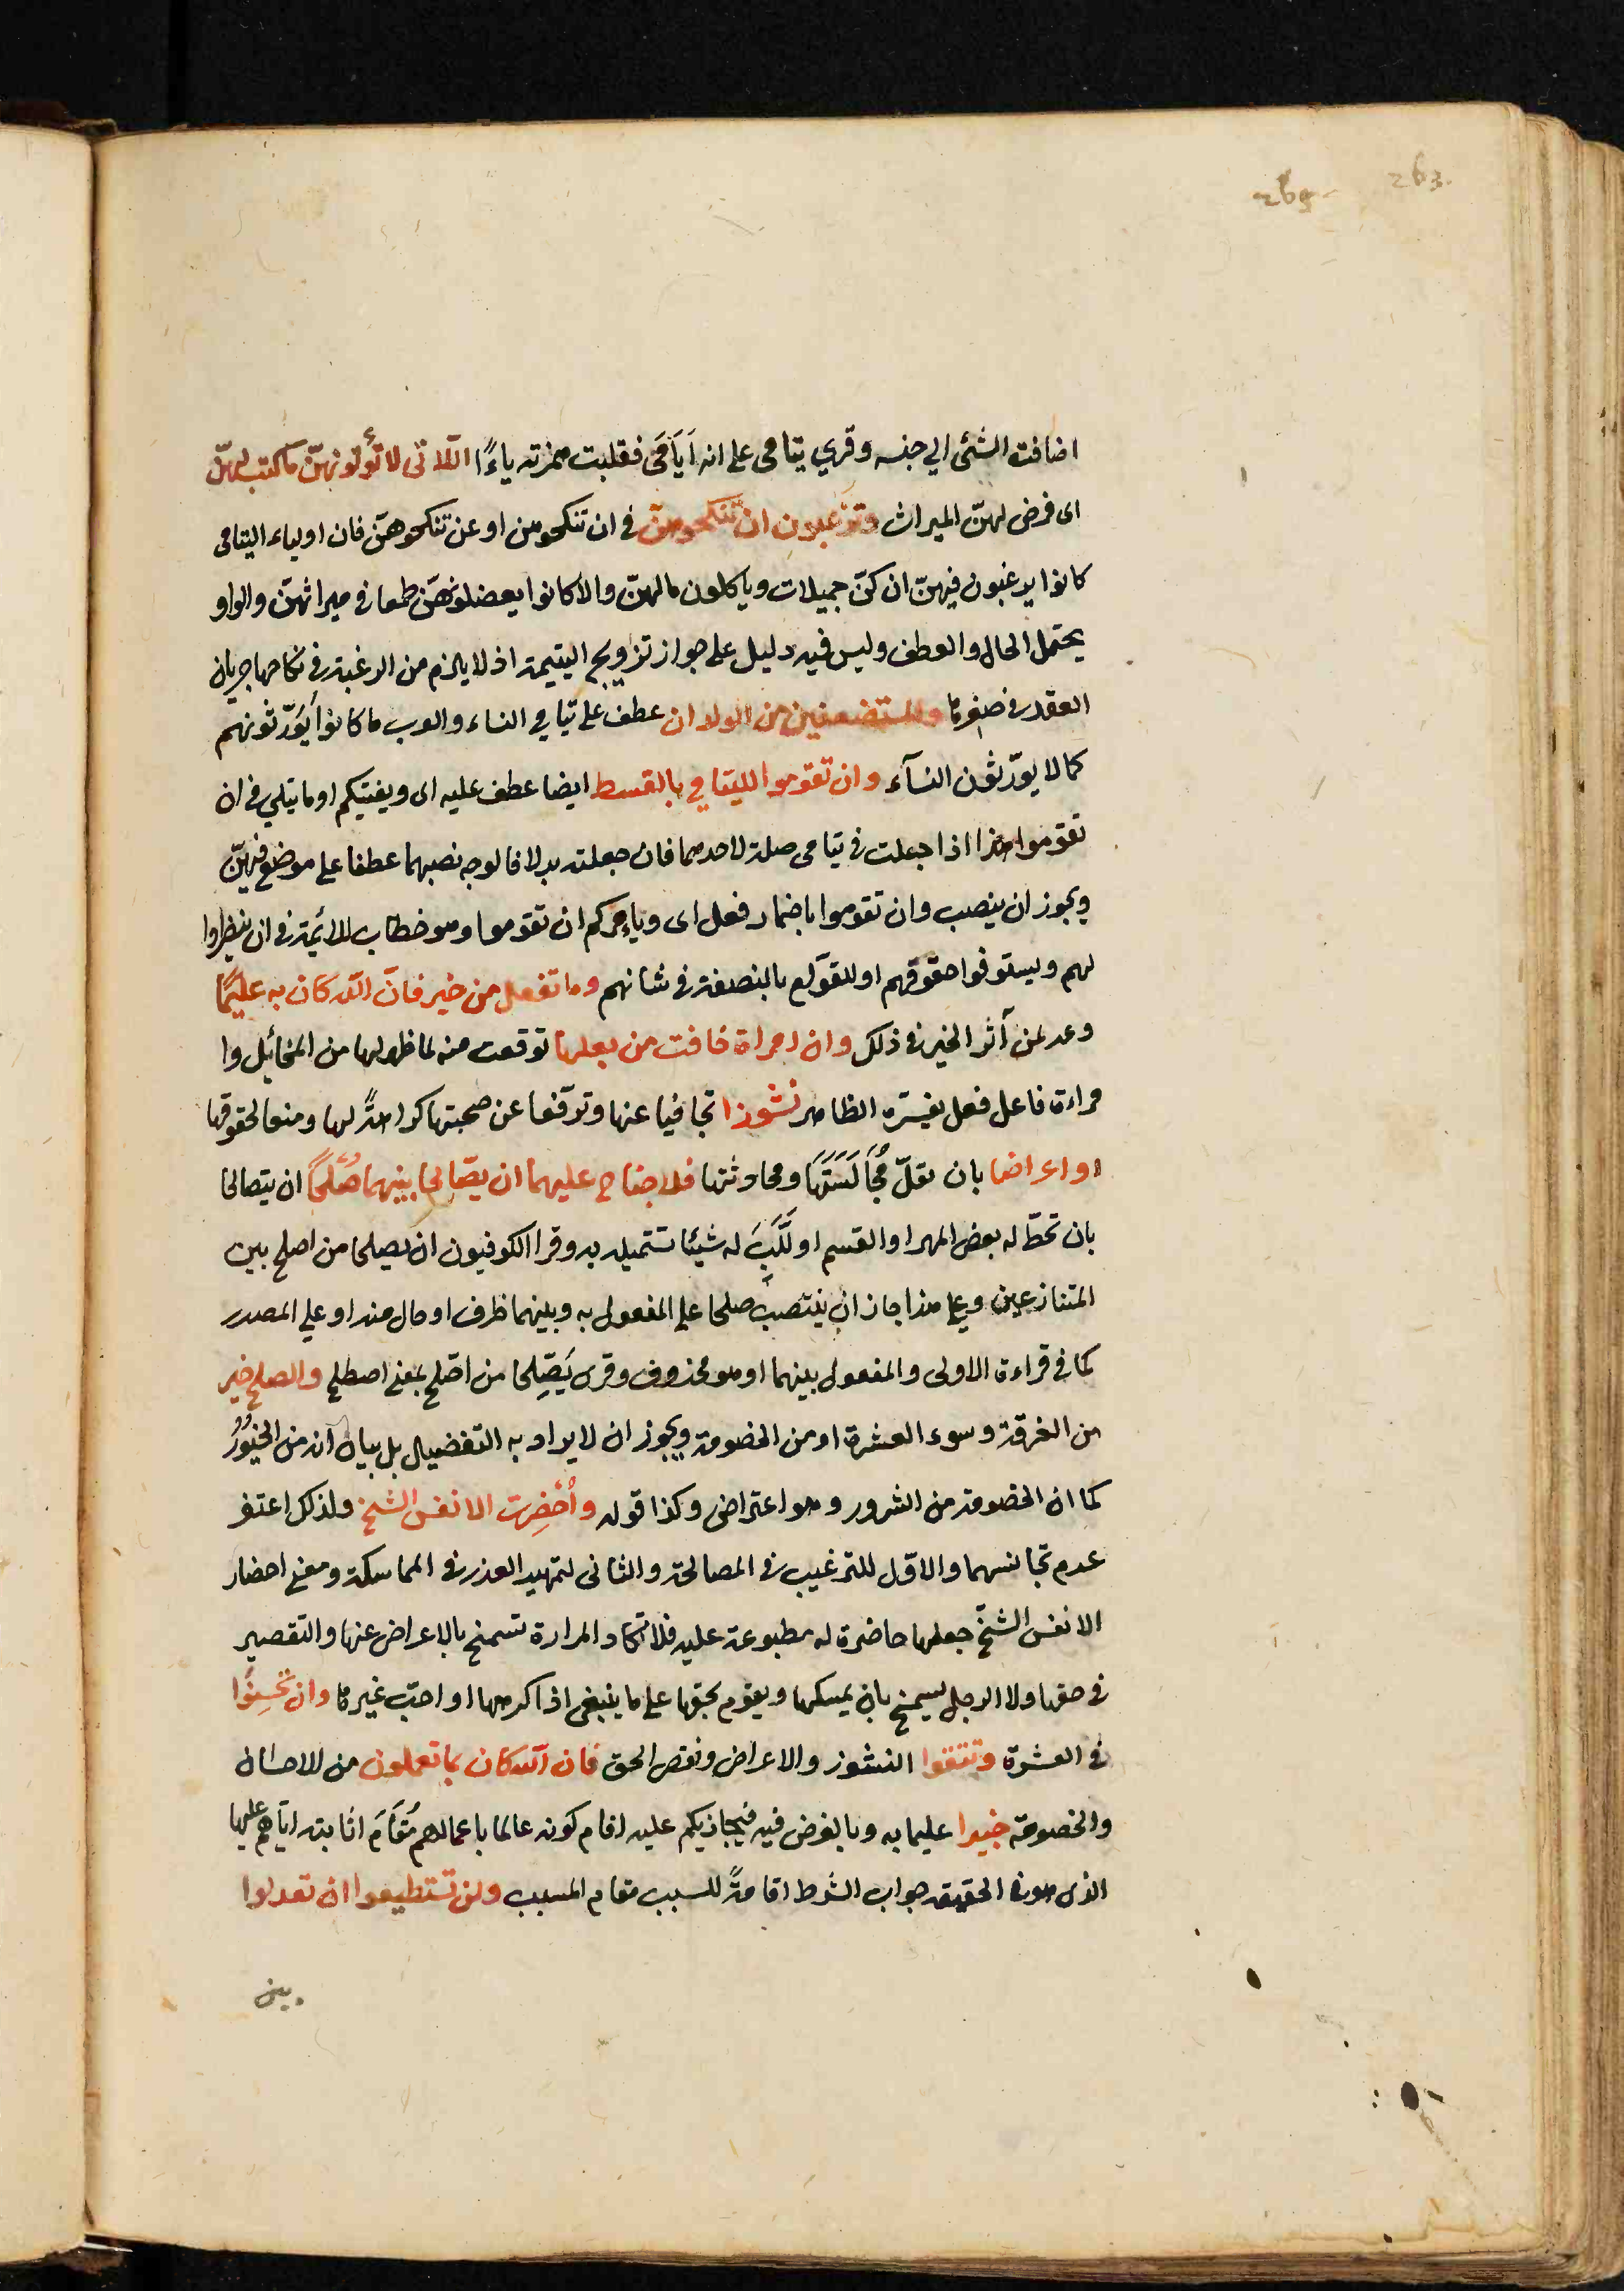 263.
265
اضافت الشئ الي جنسه وقري ييامى على انه اَيَامَى فقلبت همزته ياءً اللّاتى لا تُؤتونهنّ ما كتب لهنّ
اى فرض لهنّ الميراث وترغبون ان تنكحوهنّ فى ان تنكحوهن او عن تنكحوهنّ فان اولياء اليتامى
كانوا يرغبون فيهنّ ان كنّ جميلات وياكلون مالهنّ والا كانوا يعضلونهنّ طمعا فى ميراثهنّ والواو
يحتمل الحال والعطف وليس فيه دليل على جواز تزويج اليتيمة اذ لا يلزم من الرغبة فى نكاحها جريان
العقد فى صغرها والمستضعفين من الولدان عطف على يتامي النساء والعرب ما كانوا يُوَرّثونهم
كما لا يورّثون النسآء وان تقوموا لليتامي بالقسط ايضا عطف عليه اى ويفتيكم او ما يتلي فى ان
تقوموا هذا اذا جعلت فى يتامى صلة لاحدهما فان جعلته بدلا فالوجه نصبهما عطفا على موضع فيهنّ
ويجوز ان ينصب وان تقوموا باضمار فعل اى ويامركم ان تقوموا وهو خطاب للائمة فى ان ينظروا
لهم ويستوفوا حقوقهم او للقوّام بالنصفة فى شانهم وما تفعلو من خير فانّ الله كان به عليمًا
وعد لمن آثر الخير فى ذلك وان امراة خافت من بعلها توقعت منه لما ظهر لها من المخائل وا
مراءة فاعل فعل يفسّره الظاهر نشوزا تجافيا عنها وترفّعا عن صحبتها كراهةً لها ومنعا لحقوقها
او اعراضا بان يقلّ مُجَالَسَتَهَا ومحادثتها فلا جناح عليهما ان يصّالحا بينهما صُلحًا ان يتصالحا
بان تحطّ له بعض المهر او القسم او تَهَبَ له شيئا تستميله به وقرا الكوفيون ان يصلحا من اصلح بين
المتنازعين وعلي هذا جاز ان ينتصب صلحا علي المفعول به وبينهما ظرف او حال منه او علي المصدر
كما فى قراءة الاولى والمفعول بينهما او هو محذوف وقرى يَصّلِحا من اصّلح بمعنى اصطلح والصلح خير
من الفرقة وسوء العشرة او من الخصومة ويجوز ان لا يراد به التفضيل بل بيان انه من الخيُورُ
كما ان الخصومة من الشرور وهو اعتراض وكذا قوله وأُحْضِرت الانفس الشحّ ولذلك اغتفر
عدم تجانسهما والاوّل للترغيب فى المصالحة والثانى لتمهيد العذر فى المماسكة ومعنى احضار
الانفس الشحّ جعلها حاضرة له مطبوعة عليه فلا تكاد المراة تسمح بالاعراض عنها والتقصير
فى حقها ولا الرجل يسمح بان يمسكها ويقوم بحقها على ما ينبغى اذا كرهها او احبّ غيرها وان تُحسِنُوا
فى العشرة وتتقوا النشوز والاعراض ونقص الحق فان الله كان بما تعملون من الاحسان
والخصومة خبيرا عليما به وبالغرض فيه فيجازيكم عليه اقام كونه عالما باعمالهم مُقَامَ اثابته ايّاهم عليها
الذى هو فى الحقيقة جواب الشرط اقامةً للسبب مقام المسبب ولن تستطيعوا ان تعدلوا
بين